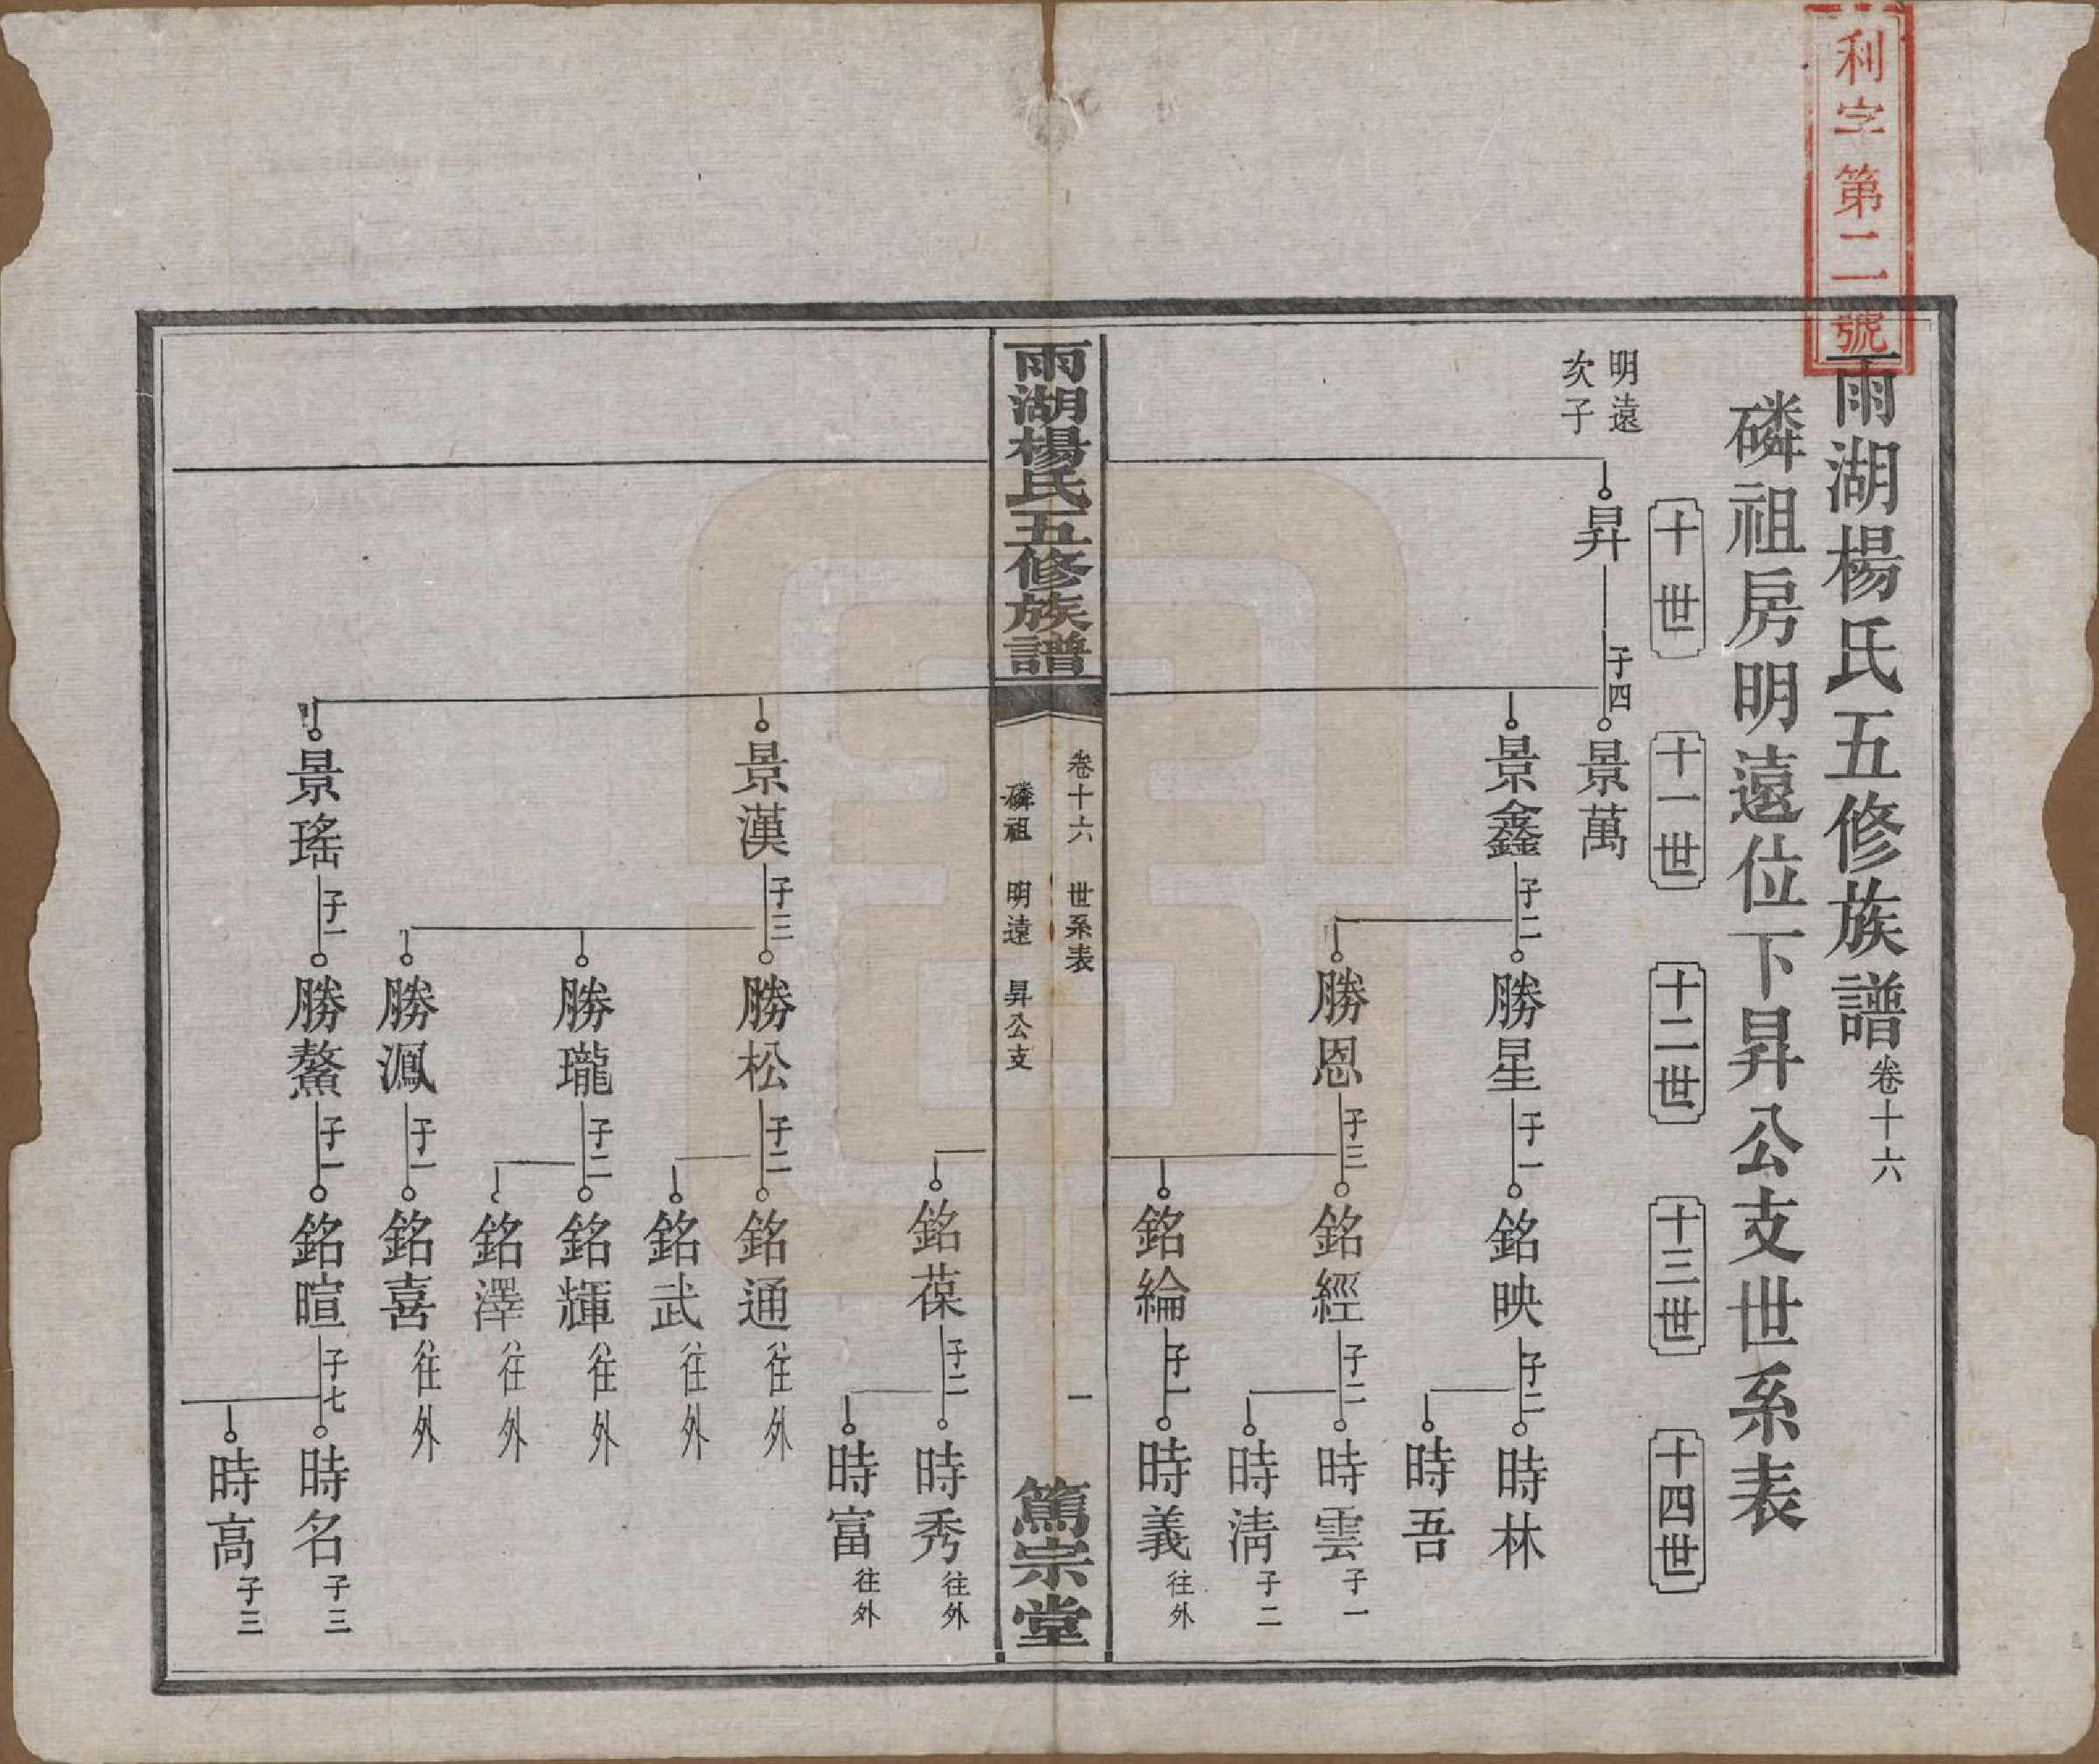 利字第二號
雨湖楊氏五修族譜卷十六
磷祖房明遠位下昇公支世系表
十世
十一世
十二世
十三世
十四世
明遠
次子
昇
子四
景萬
景鑫
子二
勝星
子一
銘映
子二
時林
時吾
勝恩
子三
銘經
子二
時雲子一
時清子二
銘綸
子一
時義往外
雨湖楊氏五修族譜
卷十六 世系表
磷祖 明遠 昇公支
一
篤宗堂
銘葆
子二
時秀往外
時富往外
景漢
子三
勝松
子二
銘通往外
銘武往外
勝瓏
子二
銘輝往外
銘澤往外
勝鳳
子一
銘喜往外
景瑤
子一
勝鰲
子一
銘暄
子七
時名子三
時高子三